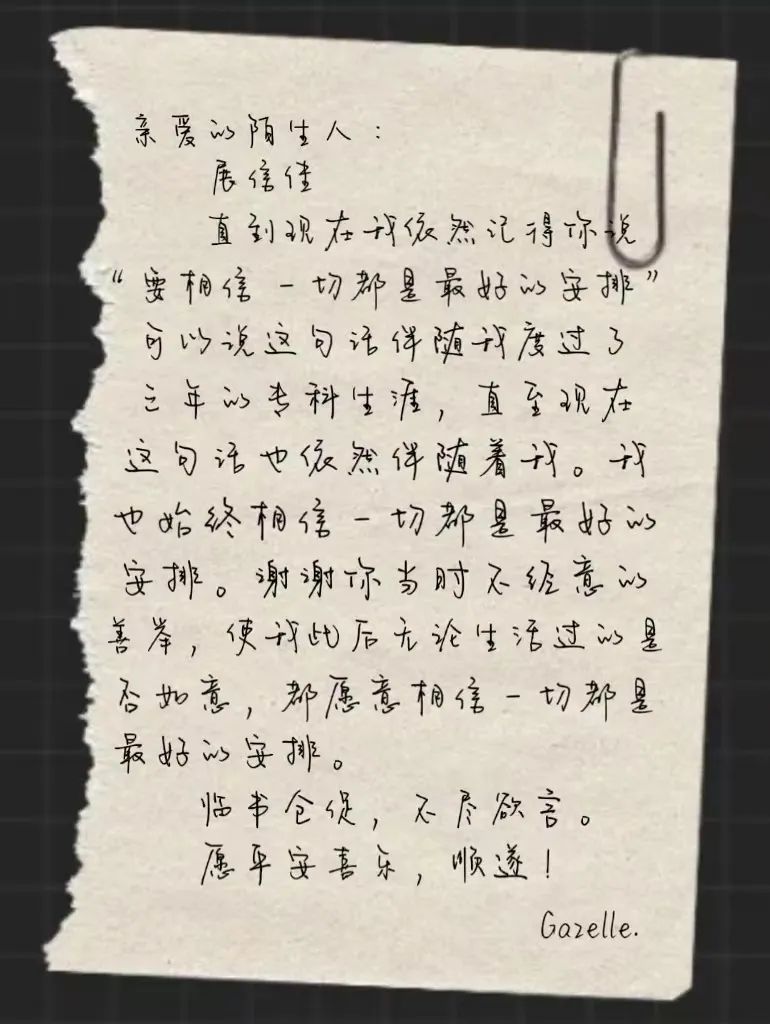 亲爱的陌生人：
展信佳
直到现在我依然记得你说
“要相信一切都是最好的安排”
可以说这句话伴随我度过了
三年的专科生涯，直至现在
这句话也依然伴随着我。我
也始终相信一切都是最好的
安排。谢谢你当时不经意的
善举，使我此后无论生活过的是
否如意，都愿意相信一切都是
最好的安排。
临书仓促，不尽欲言。
愿平安喜乐，顺遂！
Gazelle.